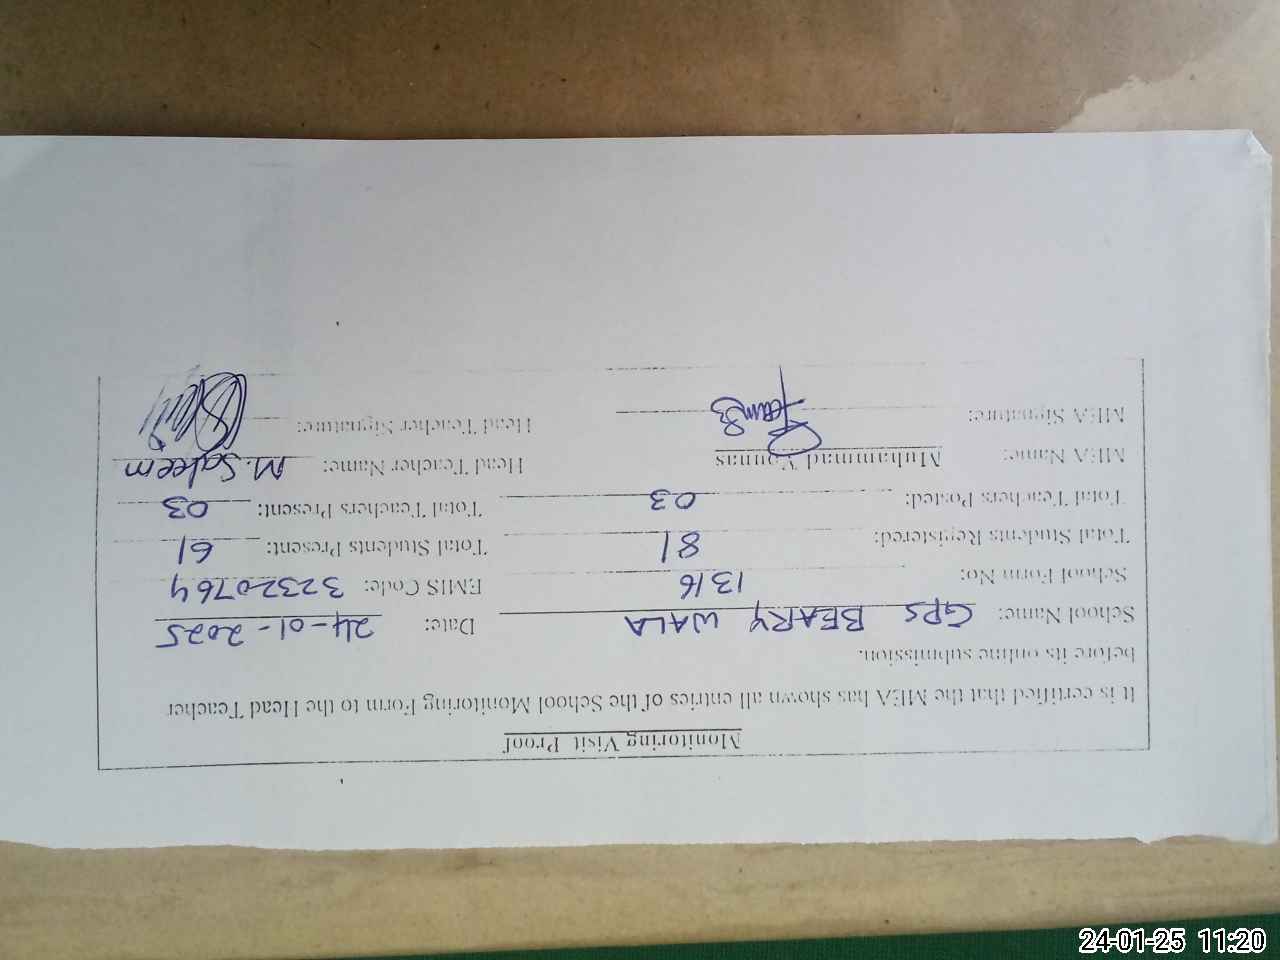 Monitoring Visit Proof
It is certified that the MEA has shown all entries of the School Monitoring Form to the Head Teacher
before its online submission.
School Name: GPS BEARY WALA Date: 24-01-2025
School Form No: 1316 EMIS Code: 32320764
Total Students Registered: 81 Total Students Present: 61
Total Teachers Posted: 03 Total Teachers Present: 03
MEA Name: Muhammad Younas Head Teacher Name: M. Saleem
MEA Signature: Head Teacher Signature:
24-01-25 11:20